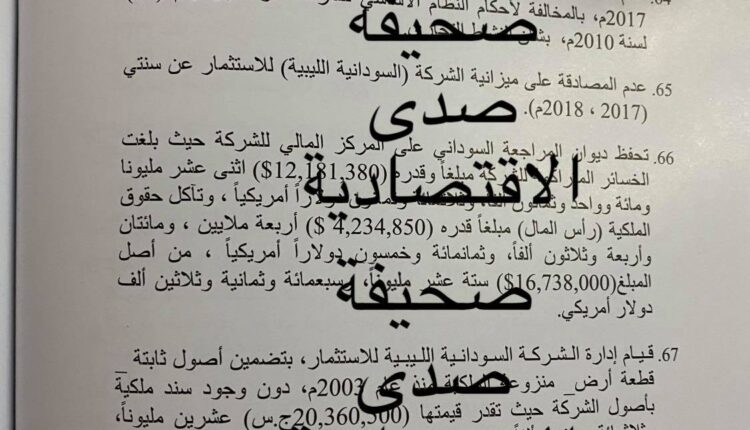 2017م، بالمخالفة لأحكام النظام الأساسي
لسنة 2010م،
65. عدم المصادقة على ميزانية الشركة (السودانية الليبية) للاستثمار عن سنتي
(2017 ، 2018م).
66. تحفظ ديوان المراجعة السوداني على المركز المالي للشركة حيث بلغت
الخسائر المتراكمة للشركة مبلغاً وقدره (12,181,380$) اثنى عشر مليونا
ومائة وواحد وثمانون ألفاً دولاراً أمريكياً ، وتآكل حقوق
الملكية (رأس المال) مبلغاً قدره (4,234,850 $) أربعة ملايين ، ومائتان
وأربعة وثلاثون ألفاً، وثمانمائة وخمسون دولاراً أمريكياً ، من أصل
المبلغ(16,738,000$) ستة عشر مليوناً، وسبعمائة وثمانية وثلاثين ألف
دولار أمريكي.
67. قيام إدارة الشركة السودانية الليبية للاستثمار، بتضمين أصول ثابتة
قطعة أرض_ منزوعة الملكية منذ عام 2003م، دون وجود سند ملكية
بأصول الشركة حيث تقدر قيمتها (20,360,500ج.س) عشرين مليوناً،
صحيفة
صدى
الاقتصادية
صحيفة
صدى